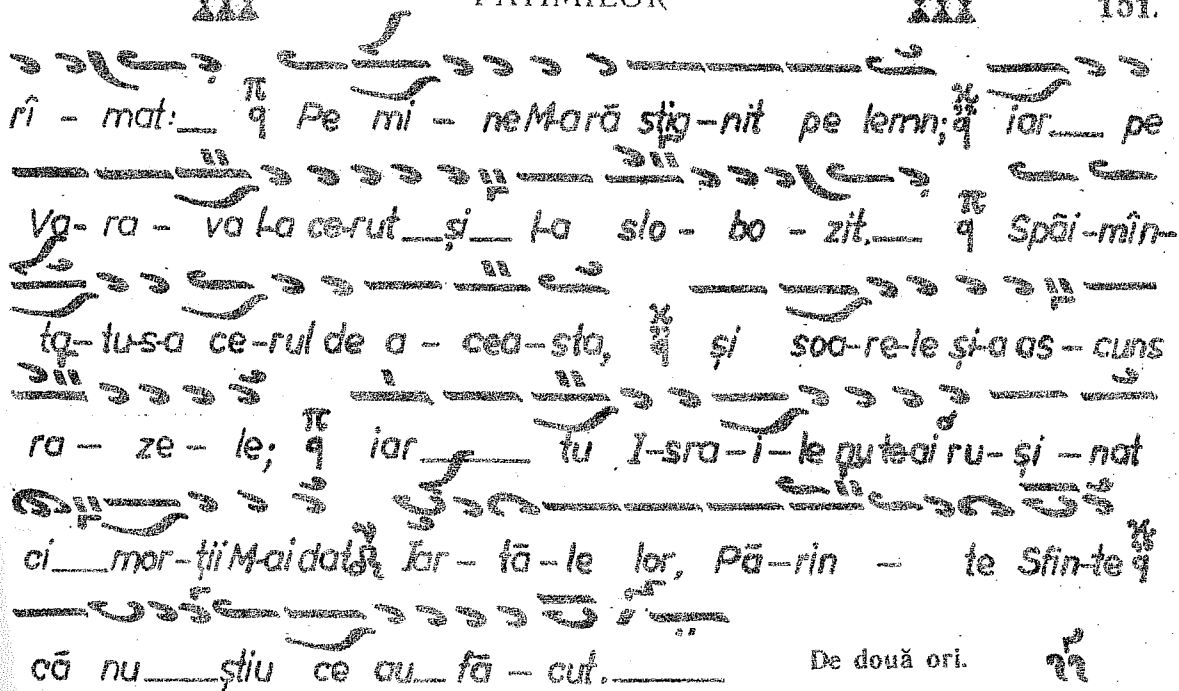 PATIMILOR 151.
rî - mat:__ Pe mi - ne M-ară stig-nit pe lemn; iar__ pe
Va- ra - va l-a ce-rut__și__ l-a slo - bo - zit.__ Spăi-mîn-
ta-tu-s-a ce-rul de a - cea-sta, și soa-re-le și-a as - cuns
ra - ze - le; iar____ tu I-sra-i-le nu te-ai ru-și - nat
ci__mor-ții M-ai dat. Iar - tă-le lor, Pă-rin - te Sfin-te
că nu___știu ce au__ fă - cut.____ De două ori.